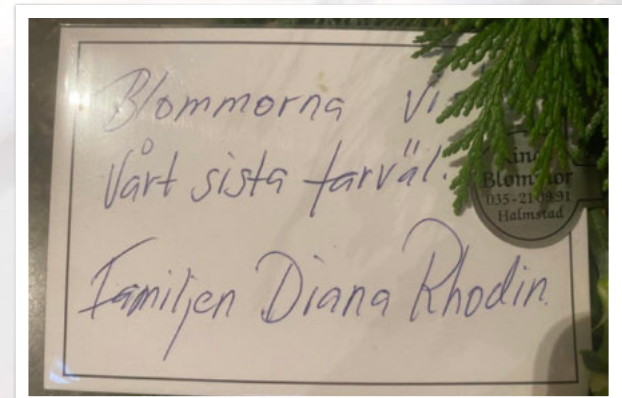 Blommorna Vi
Vårt sista farväl.
Familjen Diana Rhodin
Blommor
035-21 09 91
Halmstad